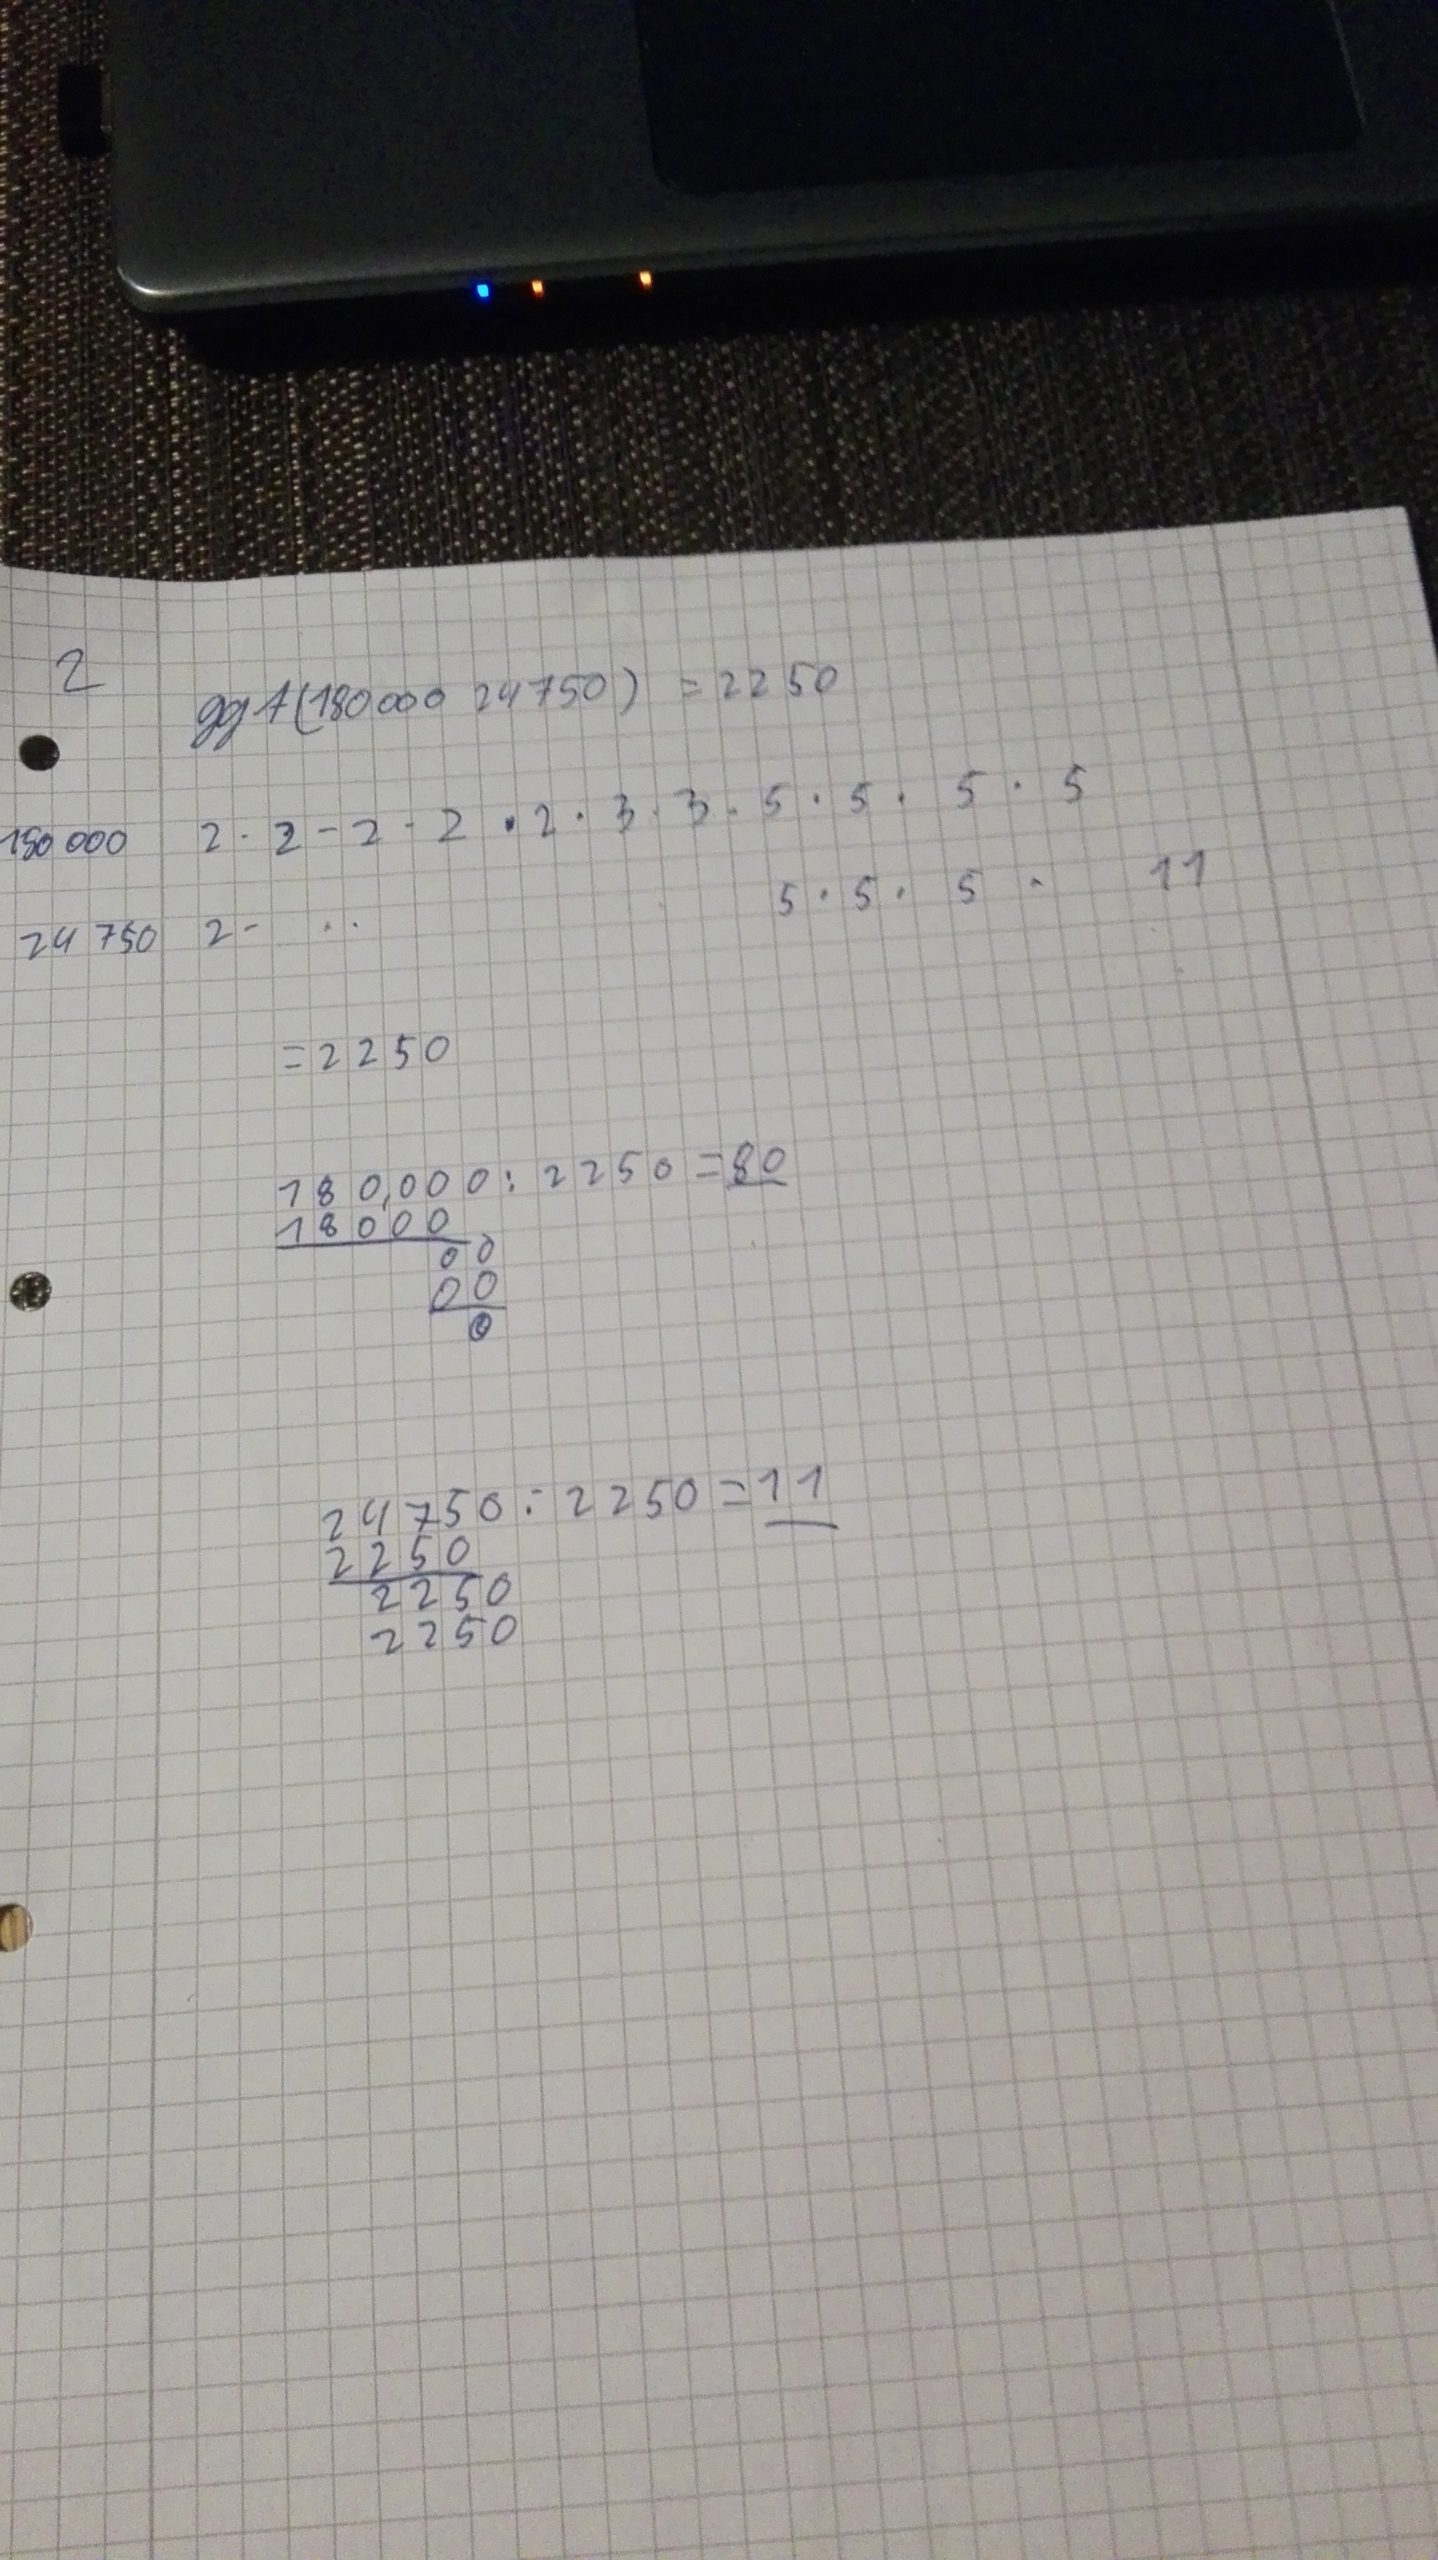 2
ggT(180000 24750) = 2250
180 000 2 · 2 - 2 - 2 · 2 · 3 · 3 · 5 · 5 · 5 · 5
24 750 2 - · · 5 · 5 · 5 · 11
= 2250
180,000 : 2250 = 80
18000
00
00
0
24750 : 2250 = 11
2250
2250
2250